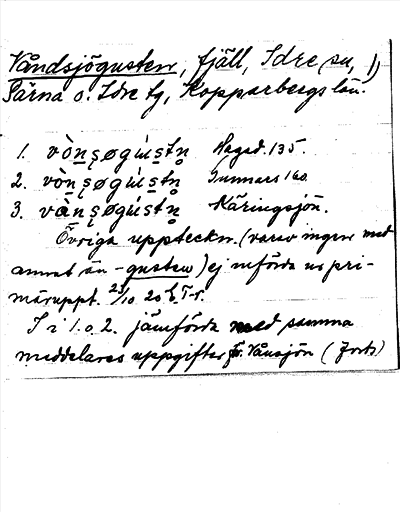 Våndsjögusten, fjäll, Idre sn, 1)
Särna o. Idre tg, Kopparbergs län.
1. vòn̥ʂøgu̇stn̥ Hagad. 135.
2. vòn̥ʂøgu̇stn̥ Gunnars 160
3. vàn̥ʂøgu̇stn̥ Näringsjön.
Övriga uppteckn. (varav ingen med
annat än -gusten) ej införda ur pri-
märuppt. 23/10 20
I i 1. o. 2. jämförda med samma
meddelares uppgifter fr. Vånsjön (forts)